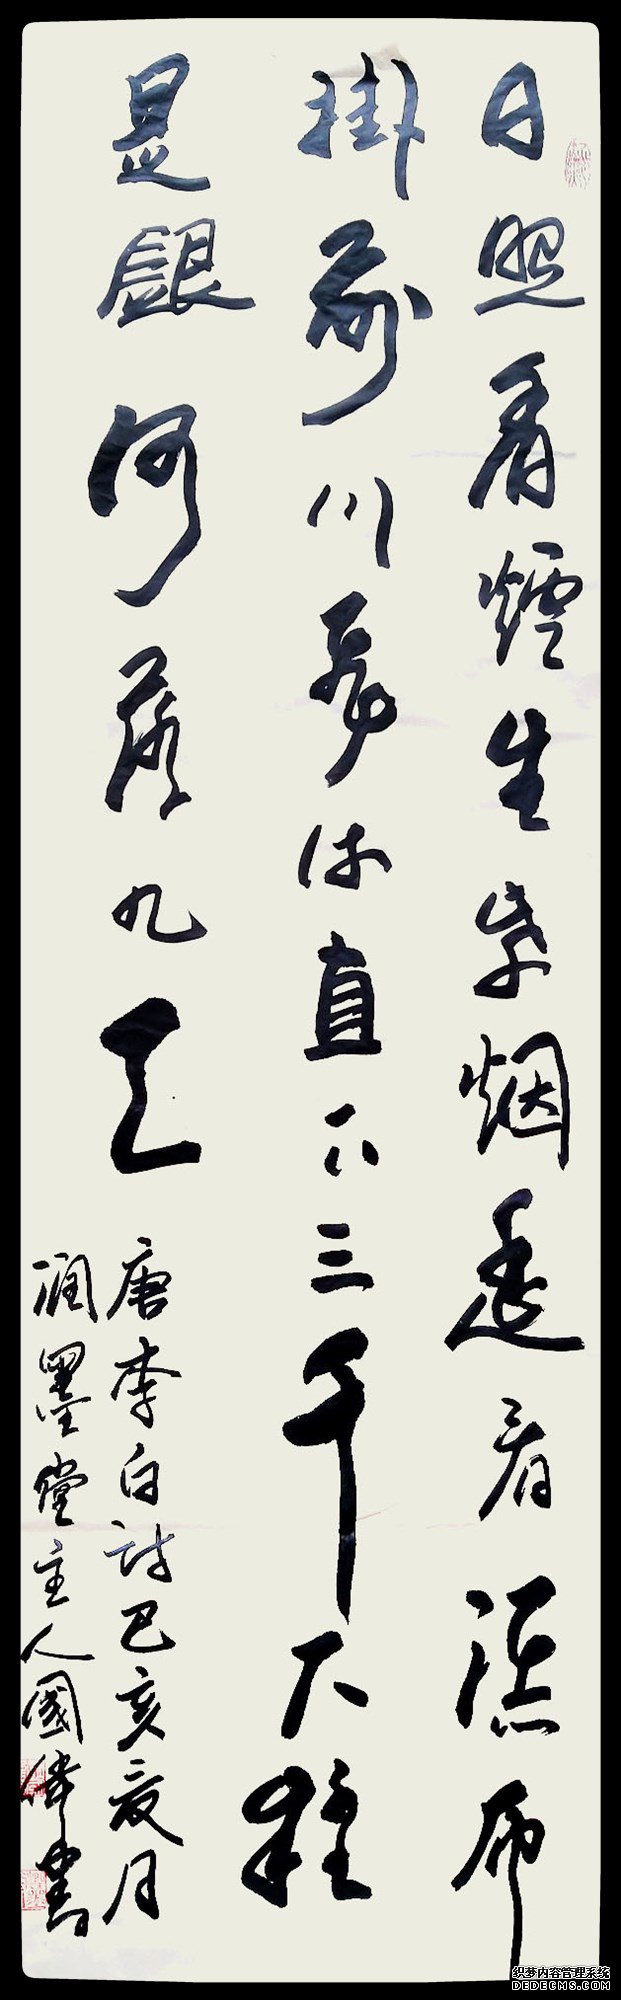 日照香爐生紫烟遥看瀑布
掛前川飛流直下三千尺疑
是銀河落九天
唐李白诗己亥夏月
润墨堂主人國偉書
织梦内容管理系统
DEDECMS.COM